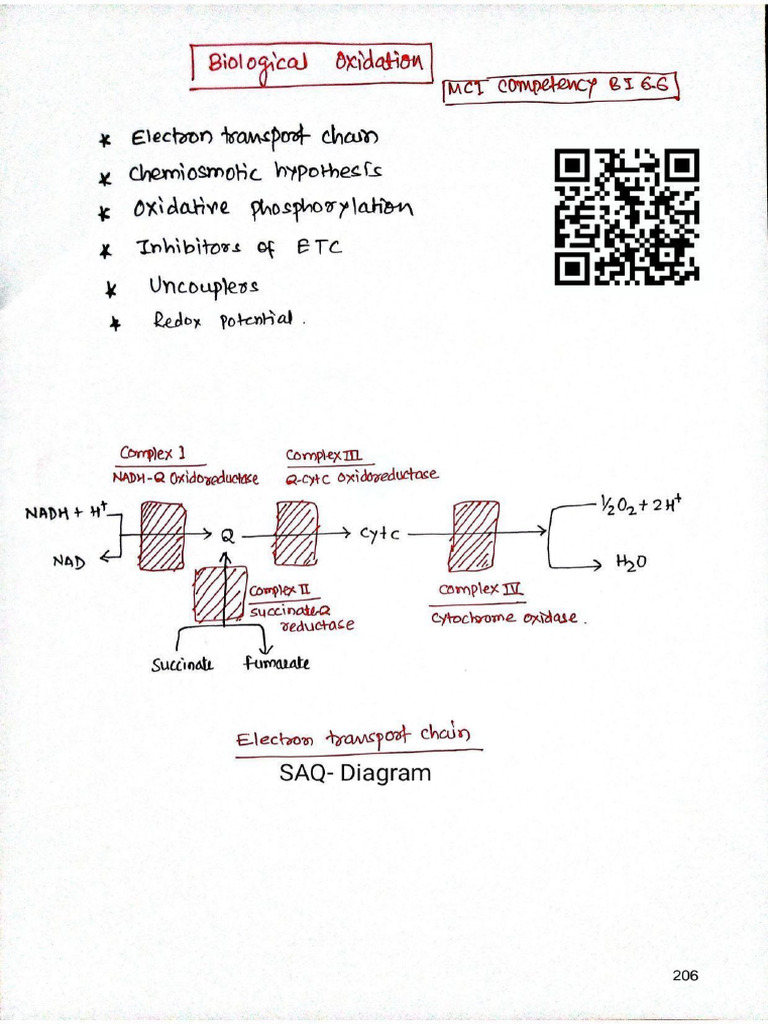 Biological Oxidation
MCI Competency BI 6.6
* Electron transport chain
* Chemiosmotic hypothesis
* Oxidative phosphorylation
* Inhibitors of ETC
* Uncouplers
* Redox potential.
Complex I
NADH-Q Oxidoreductase
Complex III
Q-Cytc oxidoreductase
NADH + H⁺
NAD
Q
Cytc
½O₂ + 2H⁺
H₂O
Complex II
Succinate-Q
reductase
Complex IV
Cytochrome oxidase.
Succinate
fumarate
Electron transport chain
SAQ- Diagram
206